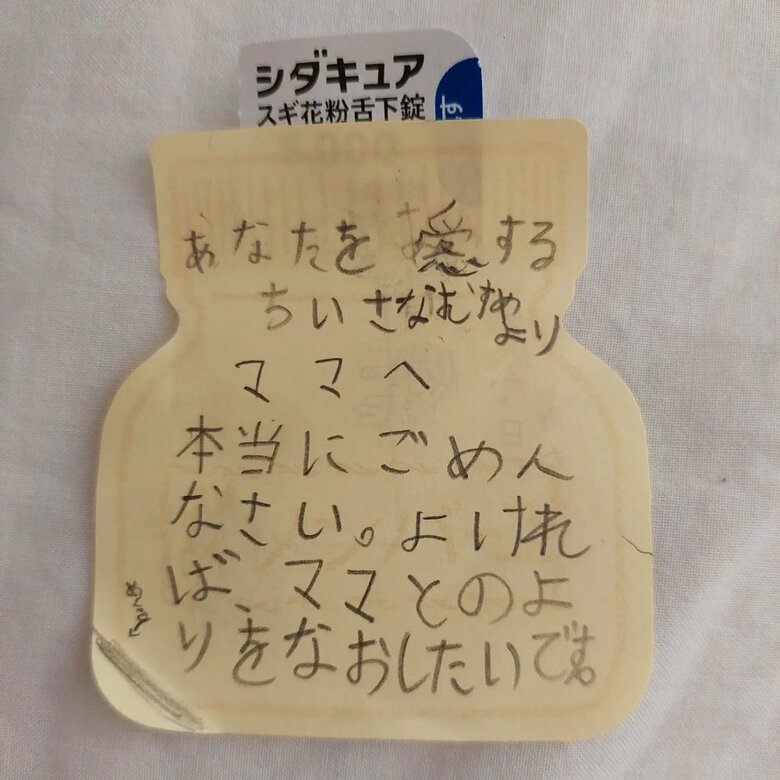 シダキュア
スギ花粉舌下錠
あなたを愛する
ちいさなむすめ
より
ママへ
本当にごめん
なさい。よければ
ば、ママとのよ
りをなおしたいです。